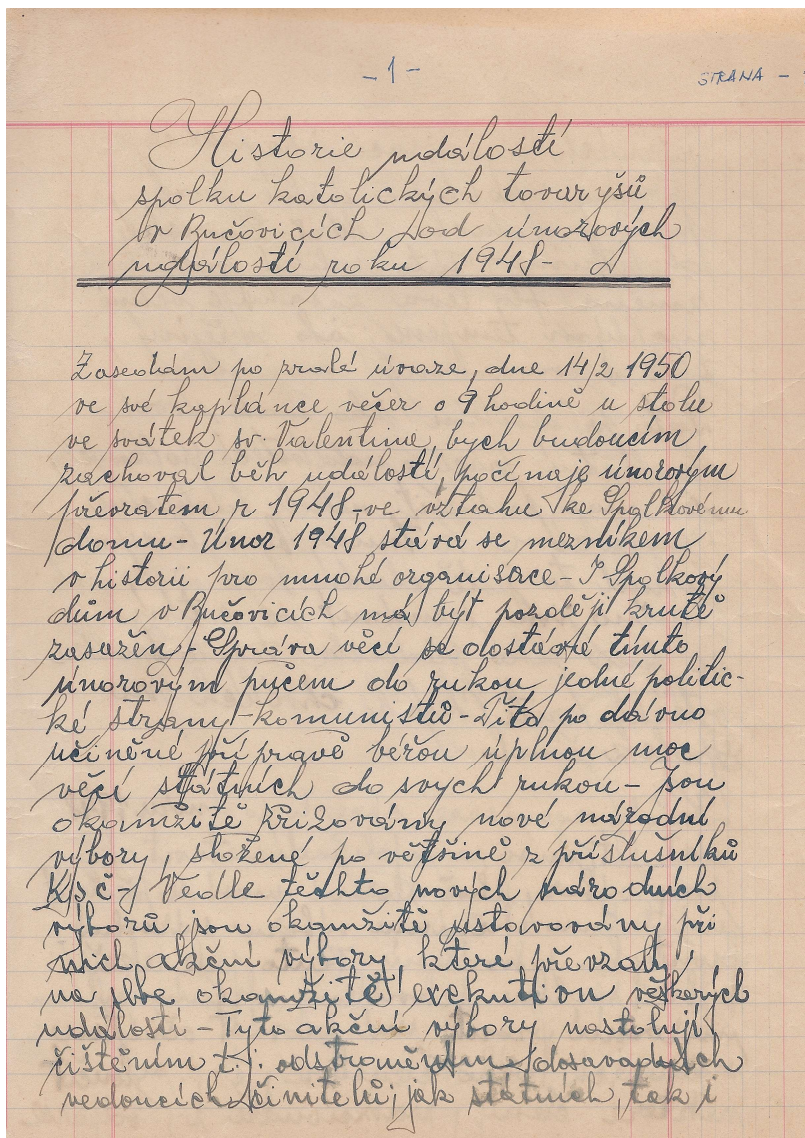 -1-
STRANA -
Historie událostí
spolku katolických tovaryšů
v Bučovicích od únorových
událostí roku 1948-
Zasedám po zralé úvaze, dne 14/2 1950
ve své kaplánce večer o 9 hodině u stolu
ve svátek sv. Valentina, bych budoucím
zachoval běh událostí, počínaje únorovým
převratem r 1948-ve vztahu ke Spolkovému
domu - Únor 1948 stává se mezníkem
v historii pro mnohé organisace - I Spolkový
dům v Bučovicích má být později krutě
zasažen - Správa věcí se dostává tímto
únorovým pučem do rukou jedné politic-
ké strany - komunistů - Tito po dávno
učiněné přípravě béřou úplnou moc
věcí státních do svych rukou - Jsou
okamžitě nové národní
výbory, složené po většině z příslušníků
KSČ - Vedle těchto nových národních
výborů jsou okamžitě ustavovány při
nich akční výbory, které převzaly
na sebe okamžitě exekutivu veškerých
událostí - Tyto akční výbory nastolují
čištěním t. j. odstraněním dosavadních
vedoucích činitelů, jak státních, tak i